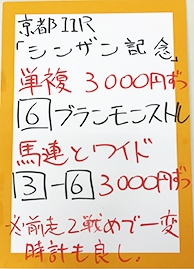 京都11R
「シンザン記念」
単複 3000円ずつ
6 ブランモンストル
馬連とワイド
3-6 3000円ずつ
※前走2戦めで一変
時計も良し。